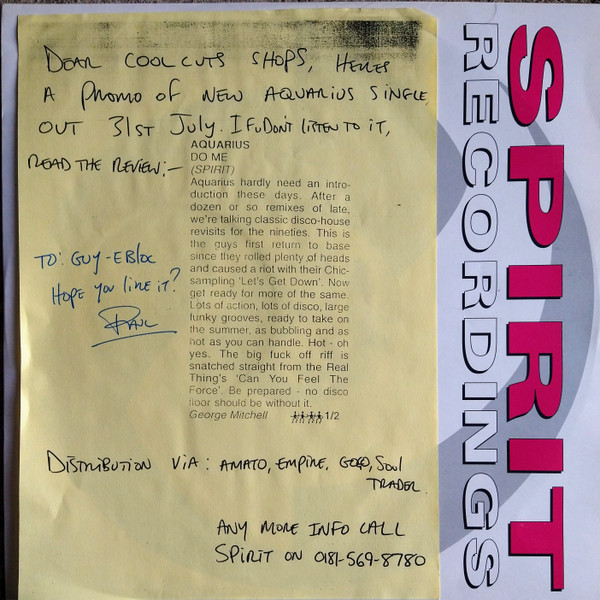 DEAR COOLCUTS SHOPS, HERES
A PROMO OF NEW AQUARIUS SINGLE,
OUT 31ST JULY. IF U DON'T LISTEN TO IT,
READ THE REVIEW:-
AQUARIUS
DO ME
(SPIRIT)
Aquarius hardly need an intro-
duction these days. After a
dozen or so remixes of late,
we're talking classic disco-house
revisits for the nineties. This is
the guys first return to base
since they rolled plenty of heads
and caused a riot with their Chic-
sampling 'Let's Get Down'. Now
get ready for more of the same.
Lots of action, lots of disco, large
funky grooves, ready to take on
the summer, as bubbling and as
hot as you can handle. Hot - oh
yes. The big fuck off riff is
snatched straight from the Real
Thing's 'Can You Feel The
Force'. Be prepared - no disco
floor should be without it.
George Mitchell 1/2
TO: GUY-EBLOC
HOPE YOU LIKE IT?
PAUL
DISTRIBUTION VIA: AMATO, EMPIRE, GOGO, SOUL
TRADER.
ANY MORE INFO CALL
SPIRIT ON 0181-569-8780
SPIRIT
RECORDINGS